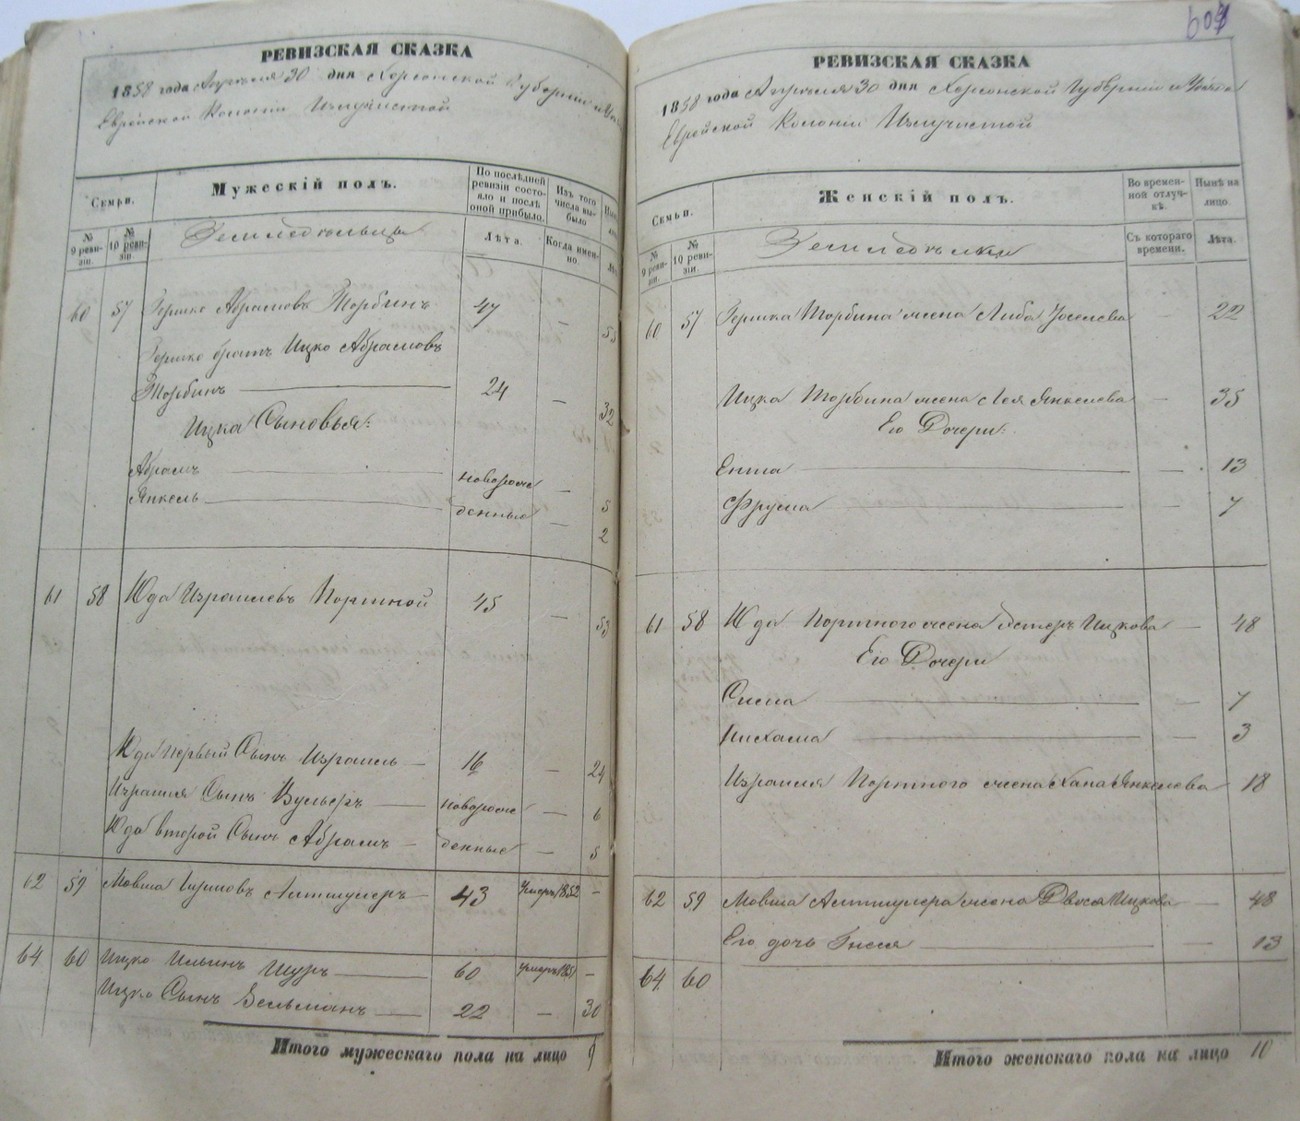 609
РЕВИЗСКАЯ СКАЗКА
1858 года Апреля 30 дня Херсонской Губерніи и
Еврейской Колоніи Излучистой
Семьи.
Мужескій полъ.
По послѣдней ревизіи состояло и послѣ оной прибыло.
Изъ того числа выбыло
№ 9 ревизіи.
№ 10 ревизіи.
Земледѣльцы
Лѣта.
Когда именно.
60 57 Гершко Абрамовъ Торбинъ 47 — 55
Гершко братъ Ицко Абрамовъ
Торбинъ 24 — 32
Ицка Сыновья:
Абрамъ новорож — 5
Янкель денные — 2
61 58 Юда Израилевъ Портной 45 — 53
Юды первый Сынъ Израиль 16 — 24
Израиля Сынъ новорож — 6
Юды второй Сынъ Абрамъ денные — 5
62 59 Мовша 43 умеръ 1852 —
64 60 Ицко Шуръ 60 умеръ —
Ицка Сынъ Зельманъ 22 — 30
Итого мужескаго пола на лицо 9
РЕВИЗСКАЯ СКАЗКА
1858 года Апреля 30 дня Херсонской Губерніи и Уѣзда
Еврейской Колоніи Излучистой
Семьи.
Женскій полъ.
Во временной отлучкѣ.
Нынѣ на лицо.
№ 9 ревизіи.
№ 10 ревизіи.
Земледѣлки
Съ котораго времени.
Лѣта.
60 57 Гершка Торбина жена Либа — 22
Ицка Торбина жена Лея Янкелева — 35
Его Дочери:
Ента — 13
Фрума — 7
61 58 Юды Портного жена Естеръ Ицкова — 48
Его Дочери
Сима — 7
Нихама — 3
Израиля Портного жена Хана Янкелева 18
62 59 Мовша жена Двося Ицкова — 48
Его дочь Гнеся — 13
64 60
Итого женскаго пола на лицо 10